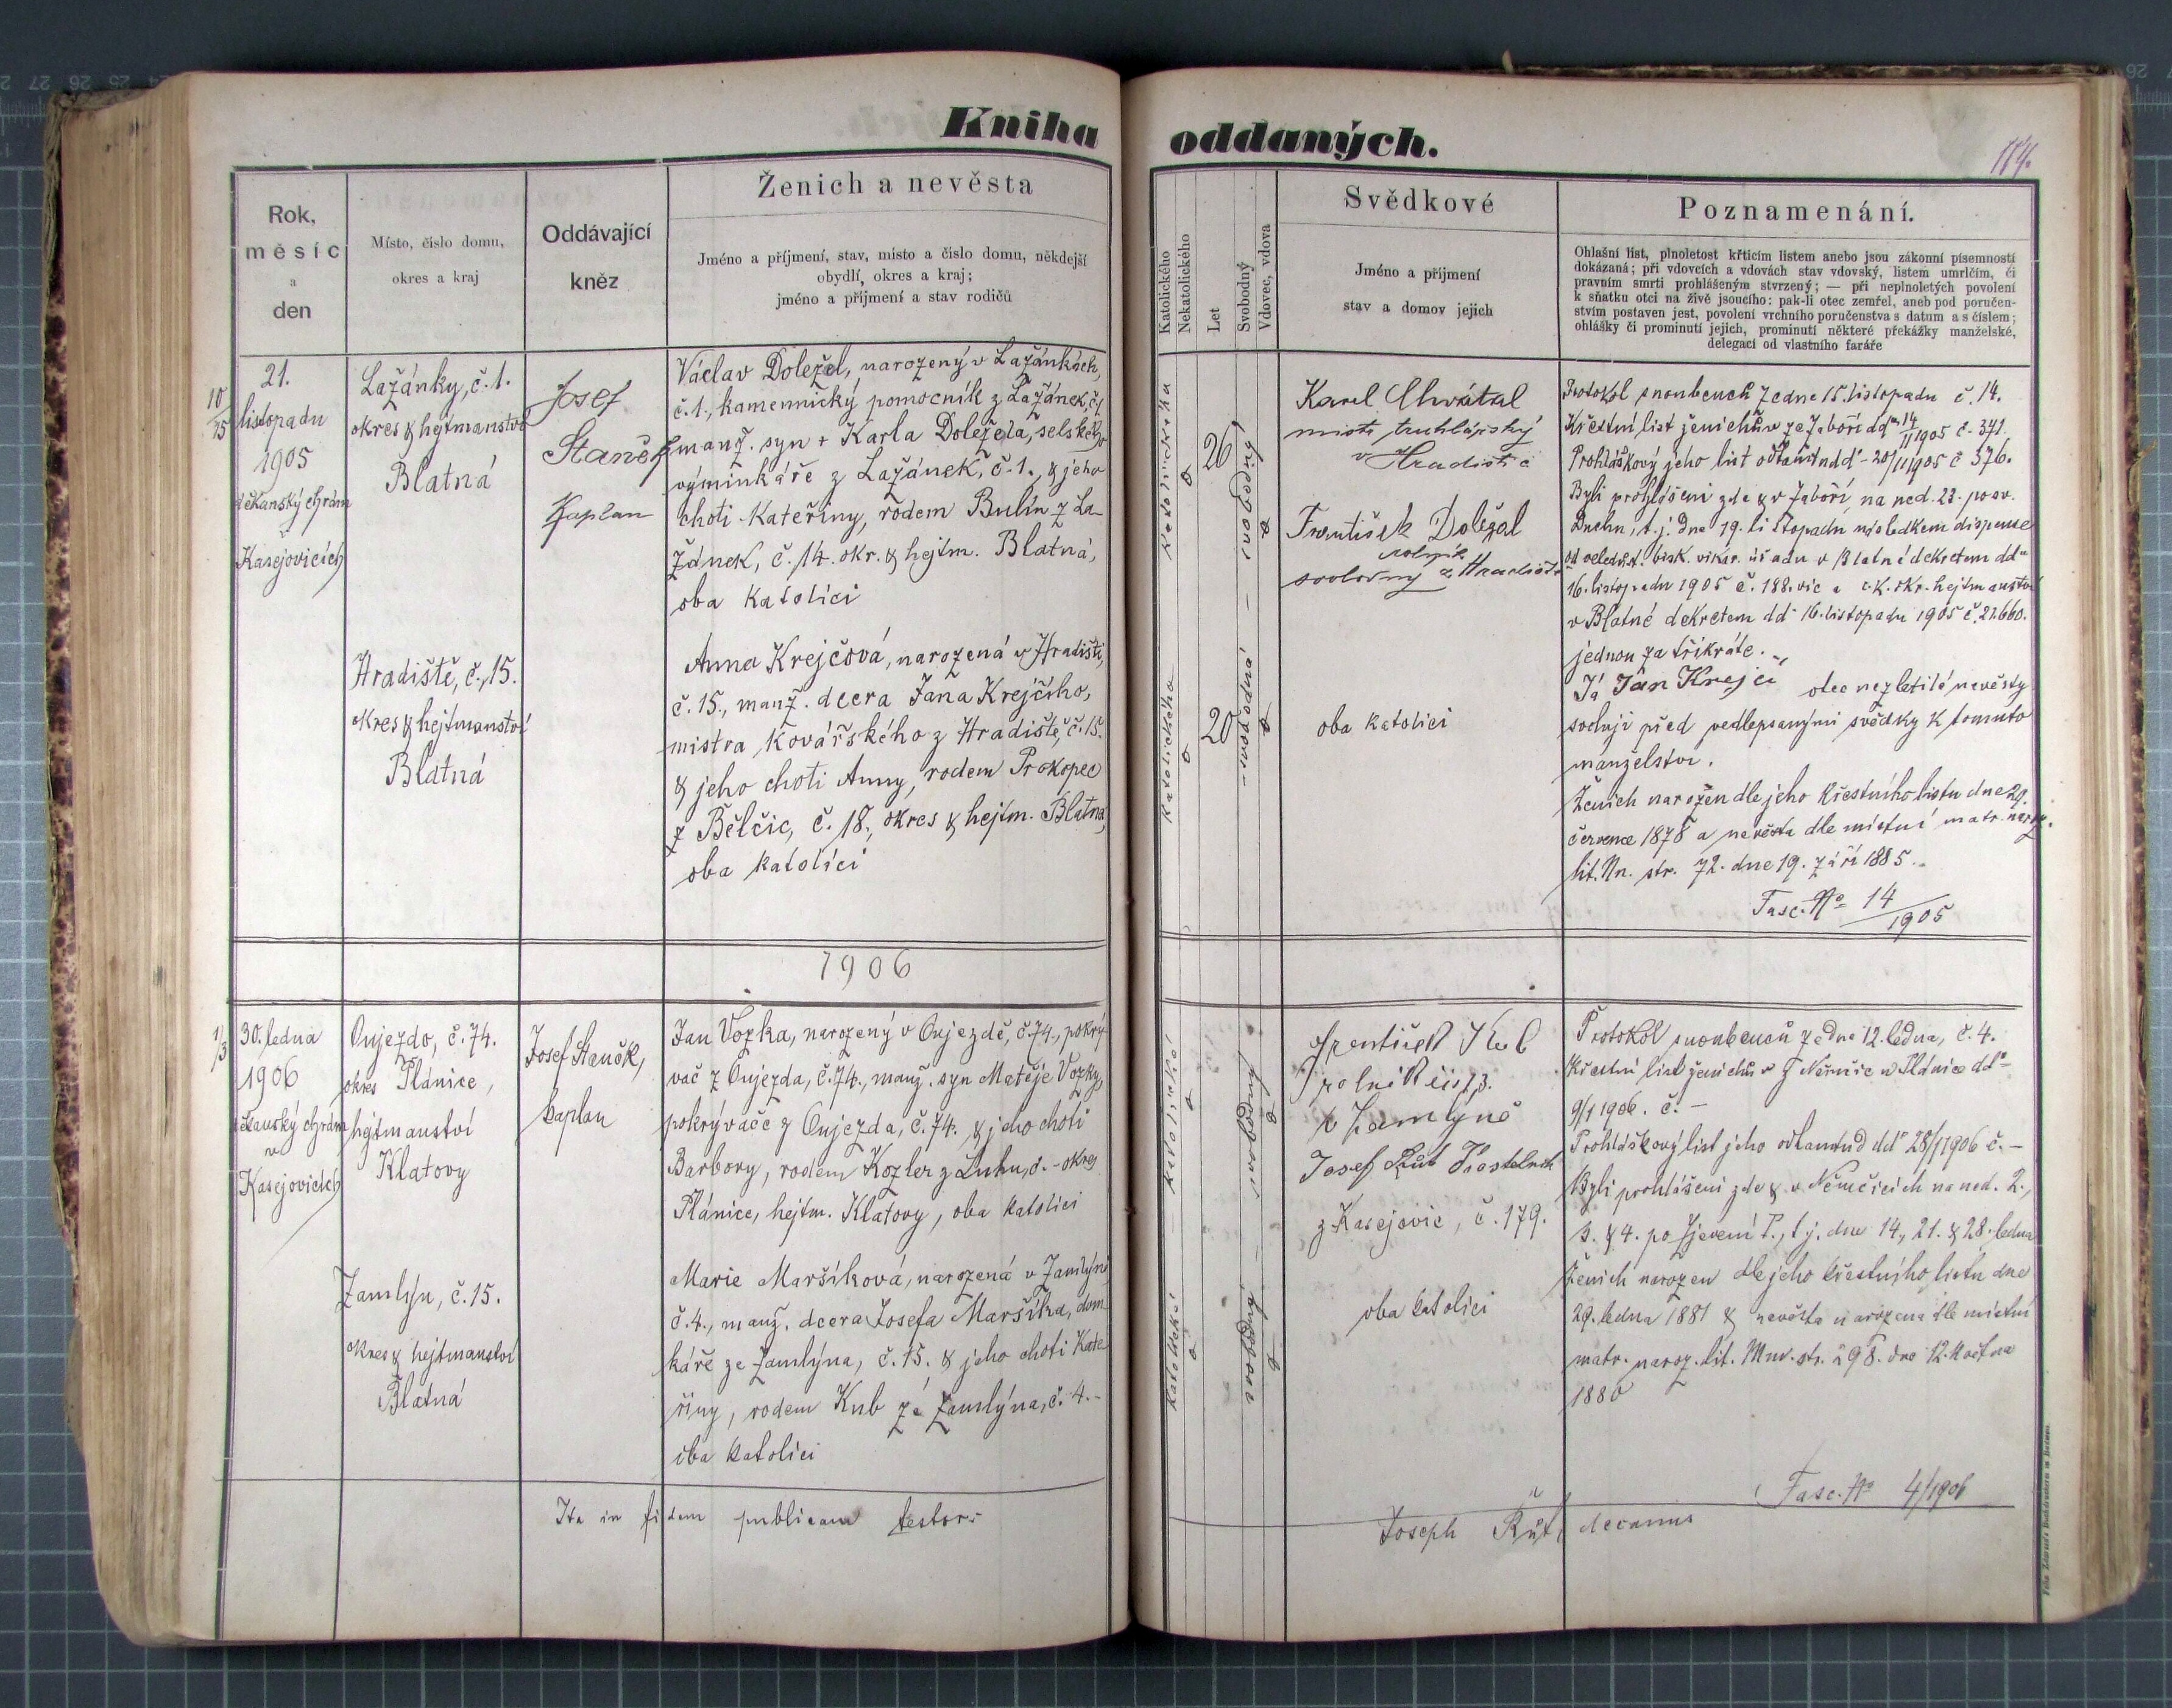 Kniha oddaných.
114.
Rok,
měsíc
a
den
Místo, číslo domu,
okres a kraj
Oddávající
kněz
Ženich a nevěsta
Jméno a příjmení, stav, místo a číslo domu, někdejší
obydlí, okres a kraj;
jméno a příjmení a stav rodičů
Katolického
Nekatolického
Let
Svobodný
Vdovec, vdova
Svědkové
Jméno a příjmení
stav a domov jejich
Poznamenání.
Ohlašní list, plnoletost křticím listem anebo jsou zákonní písemností
dokázaná; při vdovcích a vdovách stav vdovský, listem umrlčím, či
pravním smrti prohlášeným stvrzený; — při neplnoletých povolení
k sňatku otci na živě jsoucího: pak-li otec zemřel, aneb pod poručen-
stvím postaven jest, povolení vrchního poručenstva s datum a s číslem;
ohlášky či prominutí jejich, prominutí některé překážky manželské,
delegací od vlastního faráře
21.
listopadu
1905
děkanský chrám
Kasejovicích
Lažánky, č. 1.
okres & hejtmanství
Blatná
Josef
Staněk
Kaplan
Václav Doležel, narozený v Lažánkách,
č. 1., kamennický pomocník z Lažánek, č. 1
manž. syn + Karla Doležela, selského
výminkáře z Lažánek, č. 1., & jeho
choti Kateřiny, rodem Bulín z La-
žánek, č. 14. okr. & hejtm. Blatná,
oba katolíci
Hradiště, č. 15.
okres & hejtmanství
Blatná
Anna Krejčová, narozená v Hradišti,
č. 15., manž. dcera Jana Krejčího,
mistra kovářského z Hradiště, č. 15.
& jeho choti Anny, rodem Prokopec
z Bělčic, č. 18., okres & hejtm. Blatná,
oba katolíci
katolického
26
svobodný
katolického
20
svobodná
Karel Chvátal
mistr truhlářský
v Hradišti
František Doležal
rolník
svobodný z Hradiště
oba katolíci
Protokol snoubenců ze dne 15. listopadu č. 14.
Křestní list ženichův ze Záboří ddto 14/11 1905 č. 371.
Prohláškový jeho list odtamtud ddto 20/11 1905 č 376.
Byli prohlášeni zde & v Záboří, na ned. 23. po sv.
Duchu, t. j. dne 19. listopadu následkem dispense
od veledůst. bisk. vikar. úřadu v Blatné dekretem ddto
16. listopadu 1905 č. 188. vic a c. k. okr. hejtmanství
v Blatné dekretem ddto 16. listopadu 1905 č. 21.660.
jednou za třikráte.
Já Jan Krejčí otec nezletilé nevěsty
svoluji před podepsanými svědky k tomuto
manželství.
Ženich narozen dle jeho křestního listu dne 29.
července 1878 a nevěsta dle místní matr. naroz.
lit. Nn. str. 72. dne 19. září 1885.
Fasc. No 14/1905
1906
30. ledna
1906
děkanský chrám
v
Kasejovicích
Oujezdo, č. 74.
okres Plánice,
hejtmanství
Klatovy
Josef Staněk,
kaplan
Jan Vozka, narozený v Oujezdě, č. 74., pokrý-
vač z Oujezda, č. 74., manž. syn Matěje Vozky,
pokrývače z Oujezda, č. 74. & jeho choti
Barbory, rodem Kozler z Luhu, č. - okres
Plánice, hejtm. Klatovy, oba katolíci
Zamlýn, č. 15.
okres & hejtmanství
Blatná
Marie Maršíková, narozená v Zamlýně
č. 4., manž. dcera Josefa Maršíka, dom-
káře ze Zamlýna, č. 15. & jeho choti Kate-
řiny, rodem Kub ze Zamlýna, č. 4. -
oba katolíci
svobodný
svobodná
František Kub
rolník čis. 3.
v Zamlýně
Josef Růt Kostelník
z Kasejovic, č. 179.
oba katolíci
Protokol snoubenců ze dne 12. ledna, č. 4.
Křestní list ženichův z Němčic u Plánice ddto
9/1 1906. č. -
Prohláškový list jeho odtamtud ddto 28/1 1906 č. -
Byli prohlášeni zde & v Němčicích na ned. 2.,
3. & 4. po Zjevení P., t. j. dne 14., 21. & 28. ledna
Ženich narozen dle jeho křestního listu dne
29. ledna 1881 & nevěsta narozena dle místní
matr. naroz. lit. Mm. str. 298. dne 12. května
1880
Fasc. No 4/1906
Ita in fidem publicam testor:
Joseph Růt, decanus